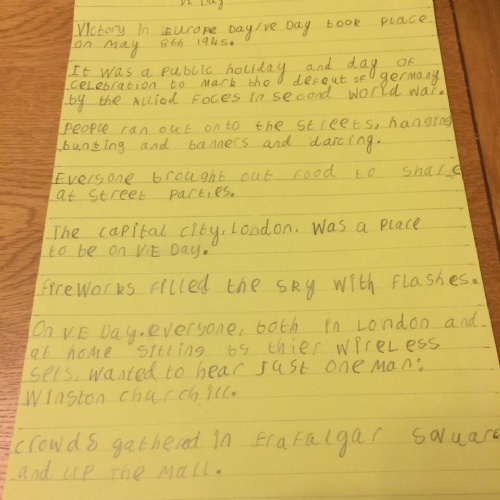 VE Day
Victory in Europe Day/ve Day took place
on May 8th 1945.
It was a public holiday and day of
celebration to mark the defeat of germany
by the Allied Foces in second world war.
people ran out onto the streets, hanging
bunting and banners and dancing.
Everyone brought out food to share
at street parties.
The capital city, London, was a place
to be on V.E Day.
fireworks filled the sky with flashes.
On V.E Day, everyone, both in London and
at home sitting by thier wireless
sets, wanted to hear just one man:
Winston churchill.
crowds gathered in Trafalgar Square
and up the Mall.